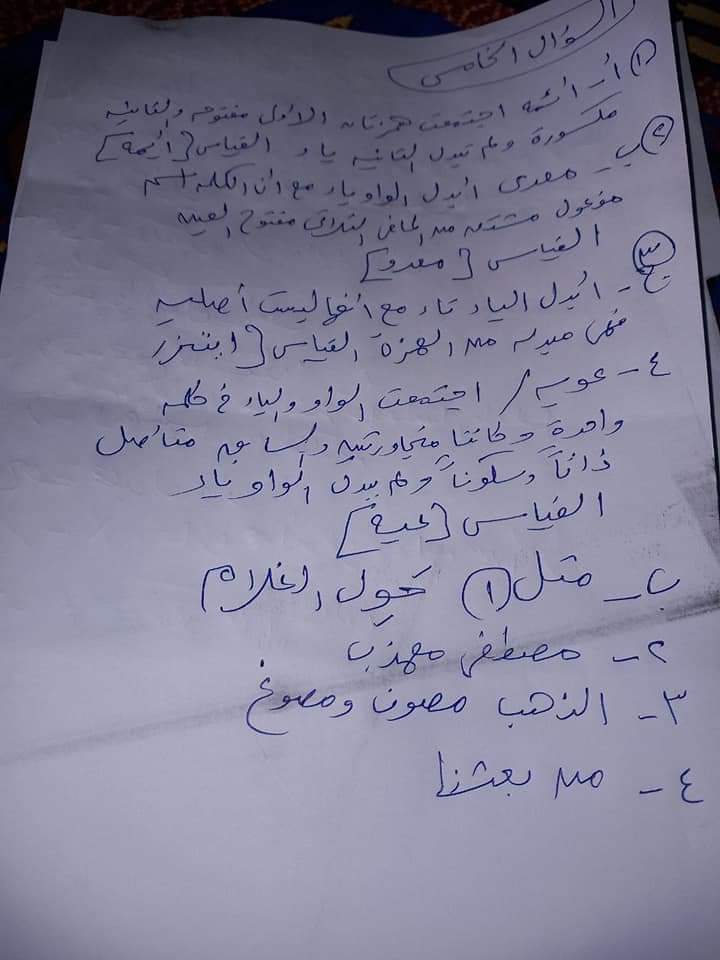 السؤال الخامس
١) أ- أئمة اجتمعت همزتان الأولى مفتوحه والثانيه
مكسورة ولم تبدل الثانيه ياء القياس [أيمة]
٢) ب- معدى أبدل الواو ياء مع أن الكلمه اسم
مفعول مشتق من الماضى الثلاثى مفتوح العين
القياس [معدو]
٣) ج- أبدل الياء تاء مع أنها ليست أصليه
فهى مبدله من الهمزة القياس [ايتزر
٤- عويه / اجتمعت الواو والياء فى كلمه
واحدة وكانتا متجاورتين والسابق متأصل
ذاتاً وسكوناً ولم يبدل الواو ياء
القياس [عية]
ب- مثل (١) حَوِل الغلام
٢- مصطفى مهذب
٣- الذهب مصون ومصوغ
٤- من بعثنا